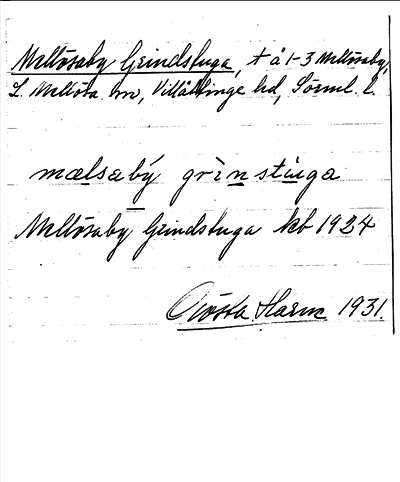 Mellösaby Grindstuga, t å 1-3 Mellösaby,
L. Mellösa sn, Villåttinge hd, Sörml. l.
mælsabý grìnstùga
Mellösaby Grindstuga kb 1924
Gösta Harm. 1931.